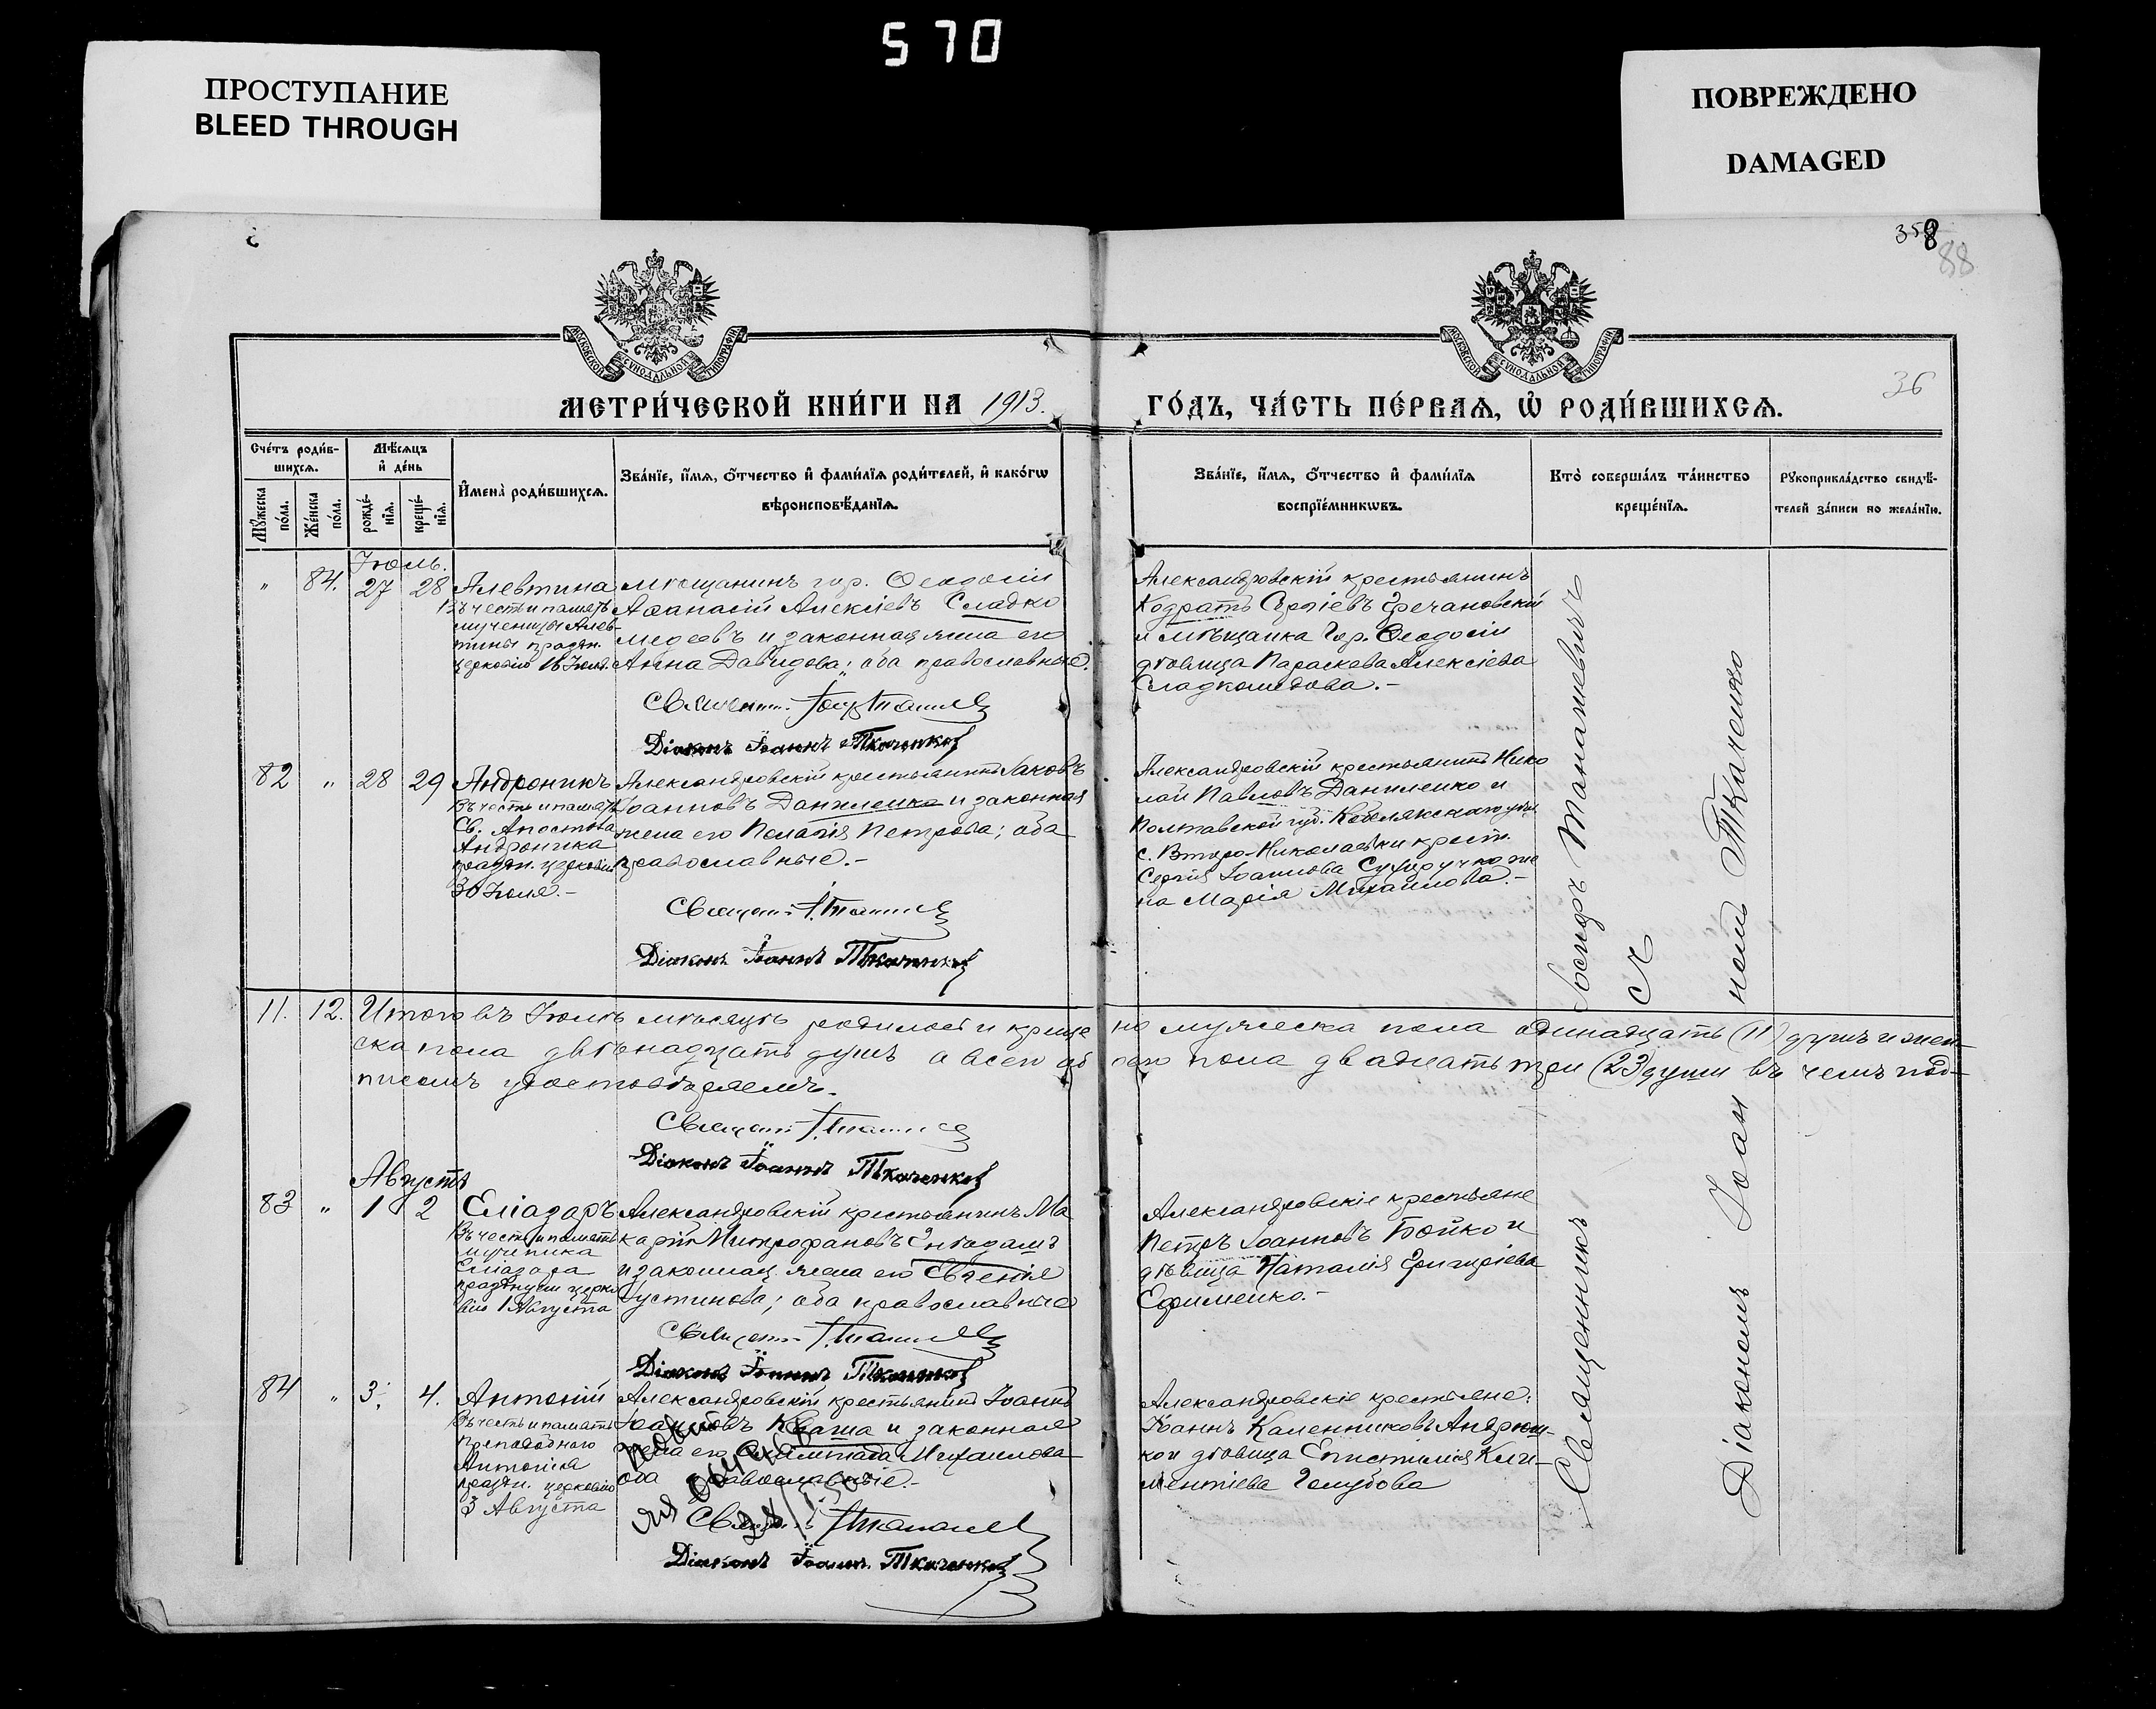 570
ПРОСТУПАНИЕ
BLEED THROUGH
ПОВРЕЖДЕНО
DAMAGED
358
88
36
МОСКОВСКОЙ СѴНОДАЛЬНОЙ ТИПОГРАФІИ
МОСКОВСКОЙ СѴНОДАЛЬНОЙ ТИПОГРАФІИ
МЕТРИ́ЧЕСКОЙ КНИ́ГИ НА 1913. ГО́ДЪ, ЧА́СТЬ ПЕ́РВАѦ, Ѡ҆ РОДИ́ВШИХСѦ.
Сче́тъ роди́в-
шихсѧ.
Мꙋ́жеска
по́ла.
Же́нска
по́ла.
Мѣ́сѧцъ
и҆ де́нь
рожде́-
нїѧ.
креще́-
нїѧ.
И҆мена̀ роди́вшихсѧ.
Зва́нїе, и҆́мѧ, ѻ҆́тчество и҆ фами́лїѧ роди́телей, и҆ како́гѡ
вѣроисповѣ́данїѧ.
Зва́нїе, и҆́мѧ, ѻ҆́тчество и҆ фами́лїѧ
воспрїе́мникѡвъ.
Кто̀ соверша́лъ та́инство
креще́нїѧ.
Рꙋкоприкла́дство свидѣ́-
телей за́писи по жела́нїю.
Іюль.
" 84. 27 28
Алевтина
Въ честь и память
мученицы Алев-
тины праздн.
церковію 16 Іюля.
мѣщанинъ гор. Ѳеодосіи
Аѳанасій Алексіевъ Сладко
медовъ и законная жена его
Анна Давидова; оба православные.
Священ. Іос. Манжеле
Діаконъ Іоаннъ Ткаченко
Александровскій крестьянинъ
Кодратъ Сергіевъ Гречановскій
и мѣщанка гор. Ѳеодосіи
дѣвица Параскева Алексіева
Сладкомедова.-
82 " 28 29
Андроникъ
Въ честь и память
Св. Апостола
Андроника
праздн. церковію
30 Іюля.-
Александровскій крестьянинъ Іаковъ
Іоанновъ Даниленко и законная
жена его Пелагія Петрова; оба
православные.-
Діаконъ Іоаннъ Ткаченко
Александровскій крестьянинъ Нико
лай Павловъ Даниленко и
Полтавской губ. Кобелякскаго уѣз.
с. Второ-Николаевки крест.
Сергія Іоаннова Сухоручко же
на Марія Михаилова.-
11. 12. Итого въ Іюлѣ мѣсяцѣ родилось и креще но мужеска пола одинадцать (11) душъ и жен-
ска пола двѣнадцать душъ а всего об оего пола двадцать три (23) души въ чемъ под-
писомъ удостовѣряемъ.
Діаконъ Іоаннъ Ткаченко
Августъ
83 " 1 2
Еліазаръ
Въ честь и память
мученика
Еліазара
празднуем церко
вію 1 Августа
Александровскій крестьянинъ Ма
карій Митрофановъ
и законная жена его Евгенія
Іустинова; оба православные
Діаконъ Іоаннъ Ткаченко
Александровскіе крестьяне
Петръ Іоанновъ Бойко и
дѣвица Наталія Григоріева
Ефименко.-
84 " 3. 4.
Антоній
Въ честь и память
Преподобного
Антонія
праздн. церковію
3 Августа
Александровскій крестьянинъ Іоаннъ
Іоанновъ Кваша и законная
жена его Михаилова
оба православные.-
Діаконъ Іоаннъ Ткаченко
Александровскіе крестьяне:
Іоаннъ Каленниковъ Андрюш-
ко и дѣвица Епистимія Кли-
ментіева Голубова
Священникъ Іосифъ
Съ
Діакономъ Іоан номъ Ткаченко